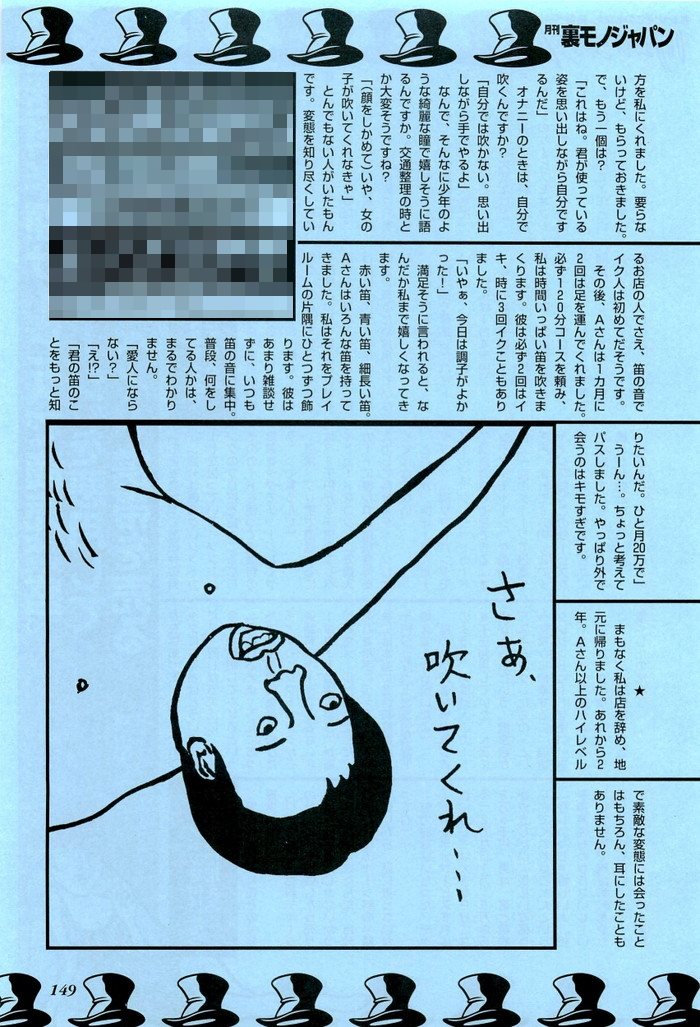 月刊 裏モノジャパン
方を私にくれました。要らな
いけど、もらっておきました。
で、もう一個は?
「これはね。君が使っている
姿を思い出しながら自分です
るんだ」
オナニーのときは、自分で
吹くんですか?
「自分では吹かない。思い出
しながら手でやるよ」
なんで、そんなに少年のよ
うな綺麗な瞳で嬉しそうに語
るんですか。交通整理の時と
か大変そうですね?
「(顔をしかめて)いや、女の
子が吹いてくれなきゃ」
とんでもない人がいたもん
です。変態を知り尽くしてい
るお店の人でさえ、笛の音で
イク人は初めてだそうです。
その後、Aさんは1カ月に
2回は足を運んでくれました。
必ず120分コースを頼み、
私は時間いっぱい笛を吹きま
くります。彼は必ず2回はイ
キ、時に3回イクこともあり
ました。
「いやぁ、今日は調子がよか
った!」
満足そうに言われると、な
んだか私まで嬉しくなってき
ます。
赤い笛、青い笛、細長い笛。
Aさんはいろんな笛を持って
きました。私はそれをプレイ
ルームの片隅にひとつずつ飾
ります。彼は
あまり雑談せ
ずに、いつも
笛の音に集中。
普段、何をし
てる人かは、
まるでわかり
ません。
「愛人になら
ない?」
「え!?」
「君の笛のこ
とをもっと知
りたいんだ。ひと月20万で」
うーん…。ちょっと考えて
パスしました。やっぱり外で
会うのはキモすぎです。
★
まもなく私は店を辞め、地
元に帰りました。あれから2
年。Aさん以上のハイレベル
で素敵な変態には会ったこと
はもちろん、耳にしたことも
ありません。
さあ、
吹いてくれ…
149